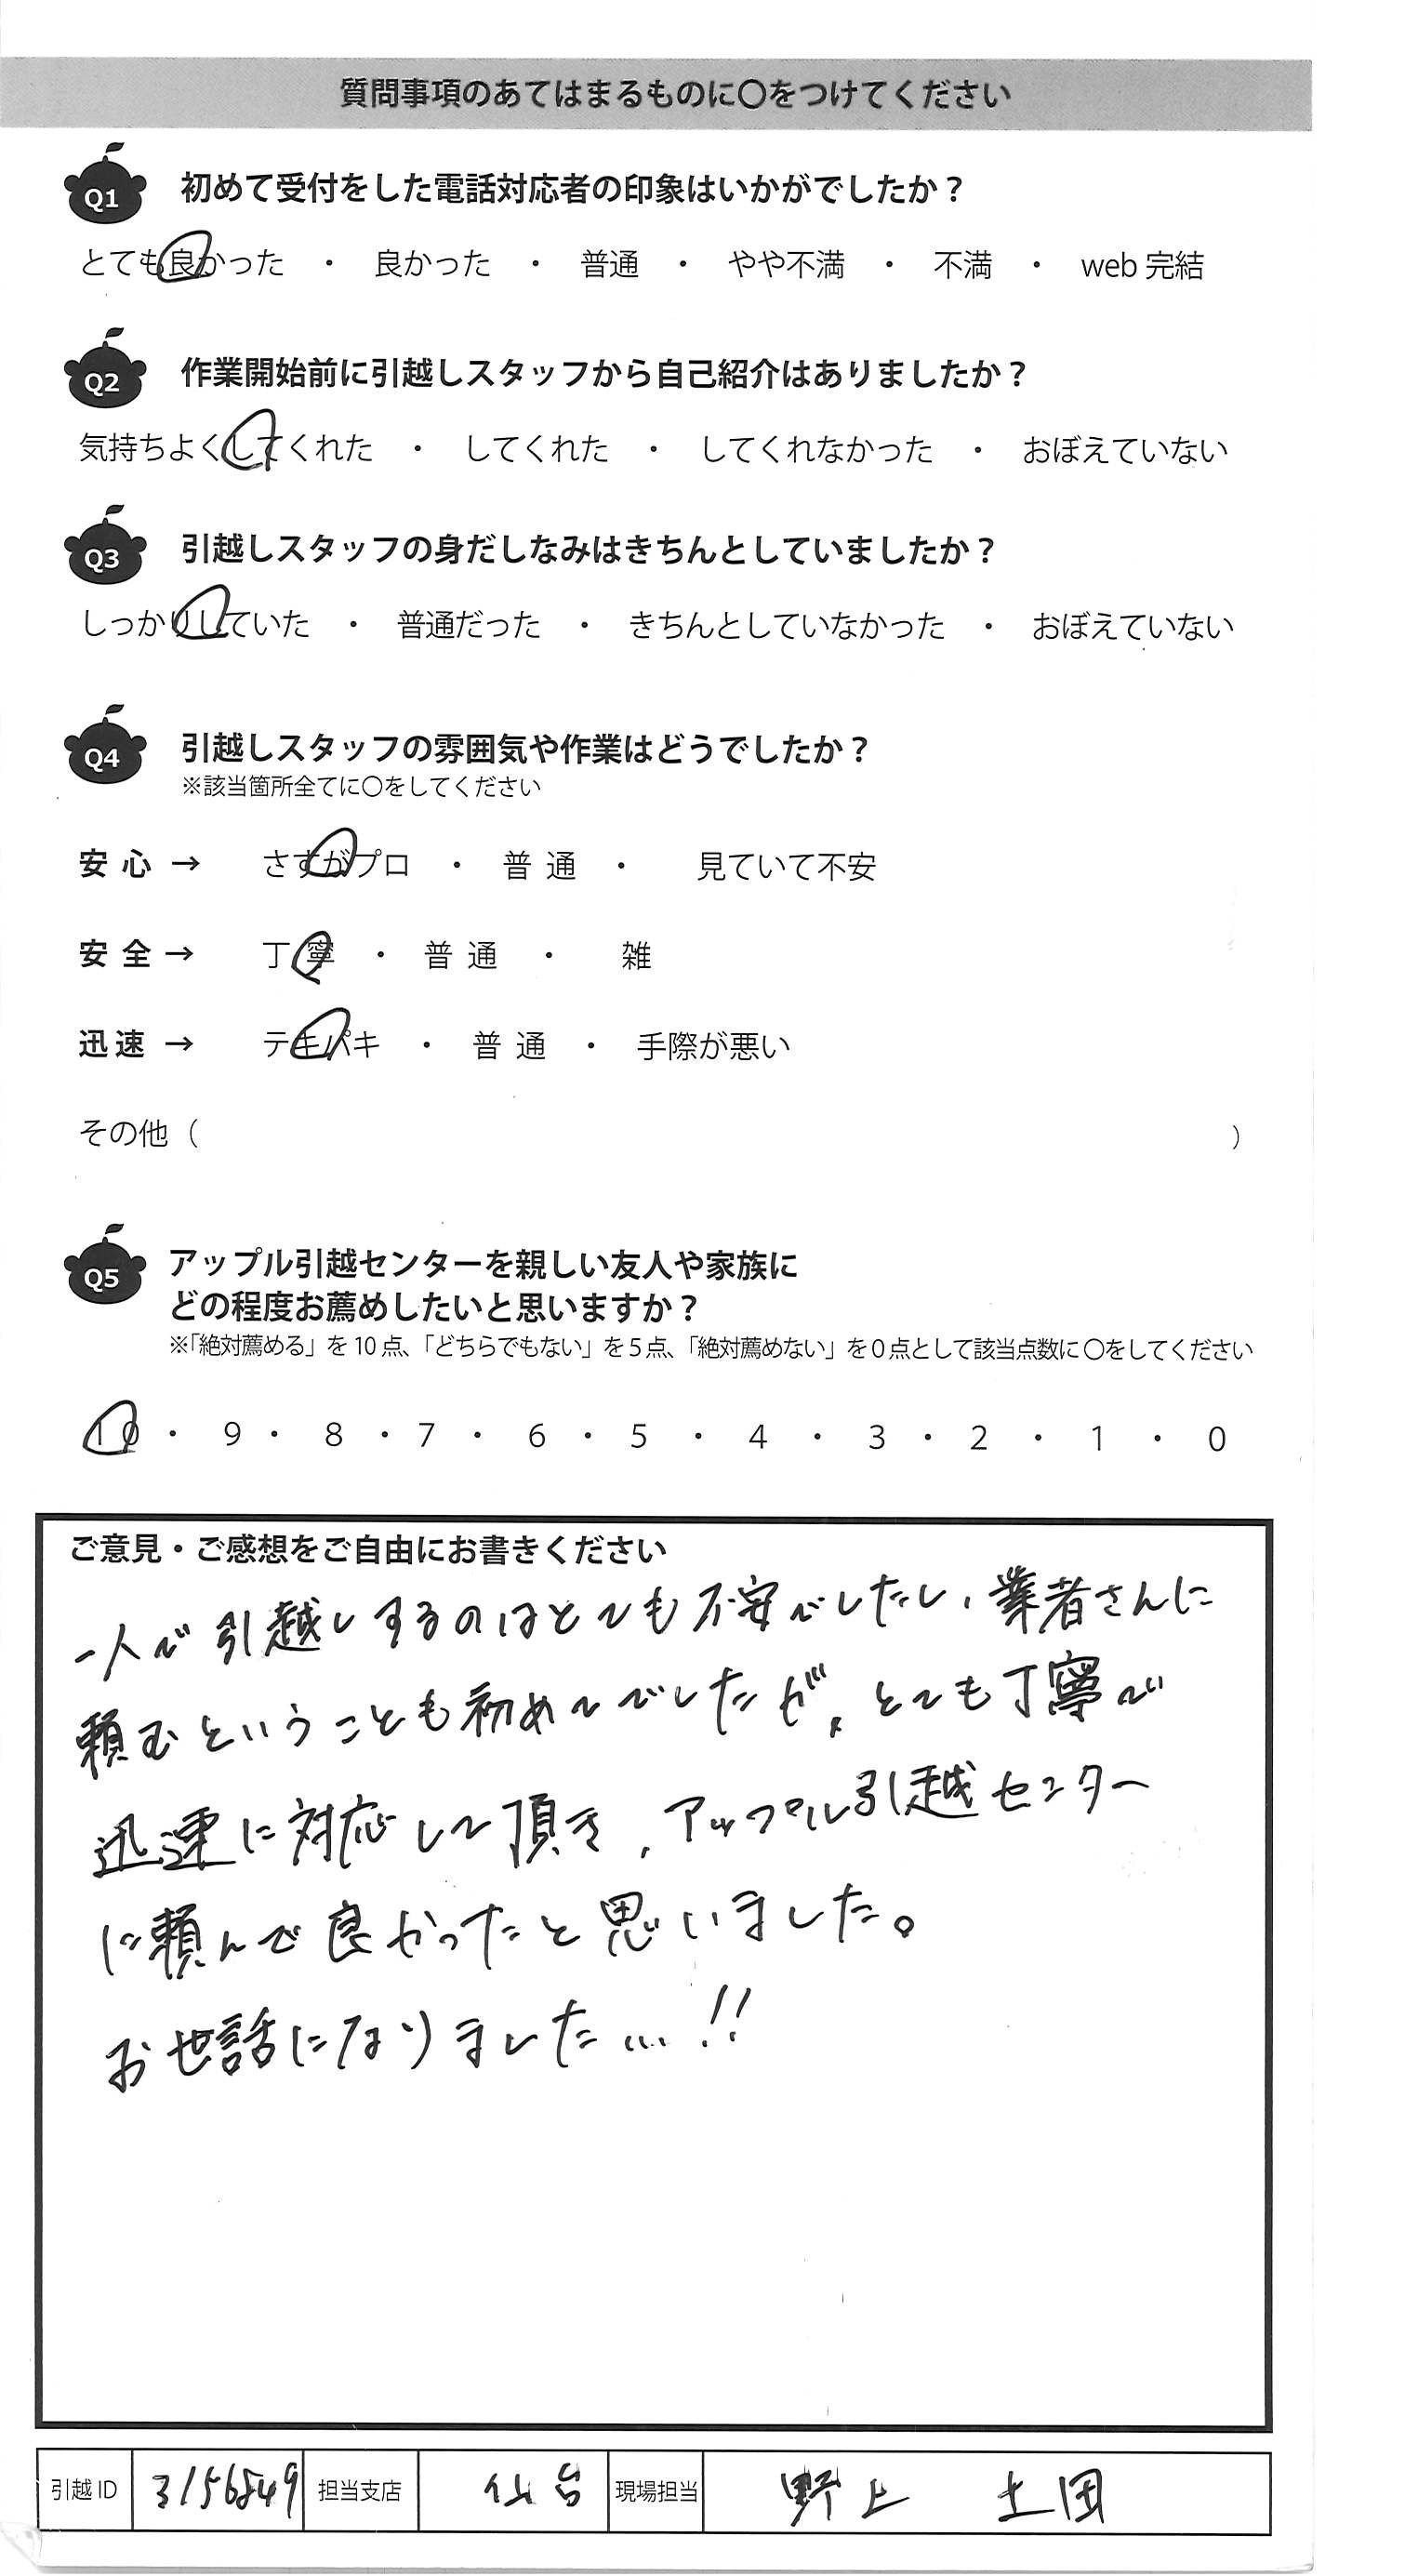 質問事項のあてはまるものに〇をつけてください
Q1 初めて受付をした電話対応者の印象はいかがでしたか？
とても良かった ・ 良かった ・ 普通 ・ やや不満 ・ 不満 ・ web 完結
Q2 作業開始前に引越しスタッフから自己紹介はありましたか？
気持ちよくしてくれた ・ してくれた ・ してくれなかった ・ おぼえていない
Q3 引越しスタッフの身だしなみはきちんとしていましたか？
しっかりしていた ・ 普通だった ・ きちんとしていなかった ・ おぼえていない
Q4 引越しスタッフの雰囲気や作業はどうでしたか？
※該当箇所全てに〇をしてください
安心 → さすがプロ ・ 普通 ・ 見ていて不安
安全 → 丁寧 ・ 普通 ・ 雑
迅速 → テキパキ ・ 普通 ・ 手際が悪い
その他（ ）
Q5 アップル引越センターを親しい友人や家族に
どの程度お薦めしたいと思いますか？
※「絶対薦める」を 10 点、「どちらでもない」を 5 点、「絶対薦めない」を 0 点として該当点数に 〇をしてください
10 ・ 9 ・ 8 ・ 7 ・ 6 ・ 5 ・ 4 ・ 3 ・ 2 ・ 1 ・ 0
ご意見・ご感想をご自由にお書きください
一人で引越しするのはとても不安でしたし、業者さんに
頼むということも初めてでしたが、とても丁寧で
迅速に対応して頂き、アップル引越センター
に頼んで良かったと思いました。
お世話になりました…!!
引越 ID 3156849 担当支店 仙台 現場担当 野上 土田